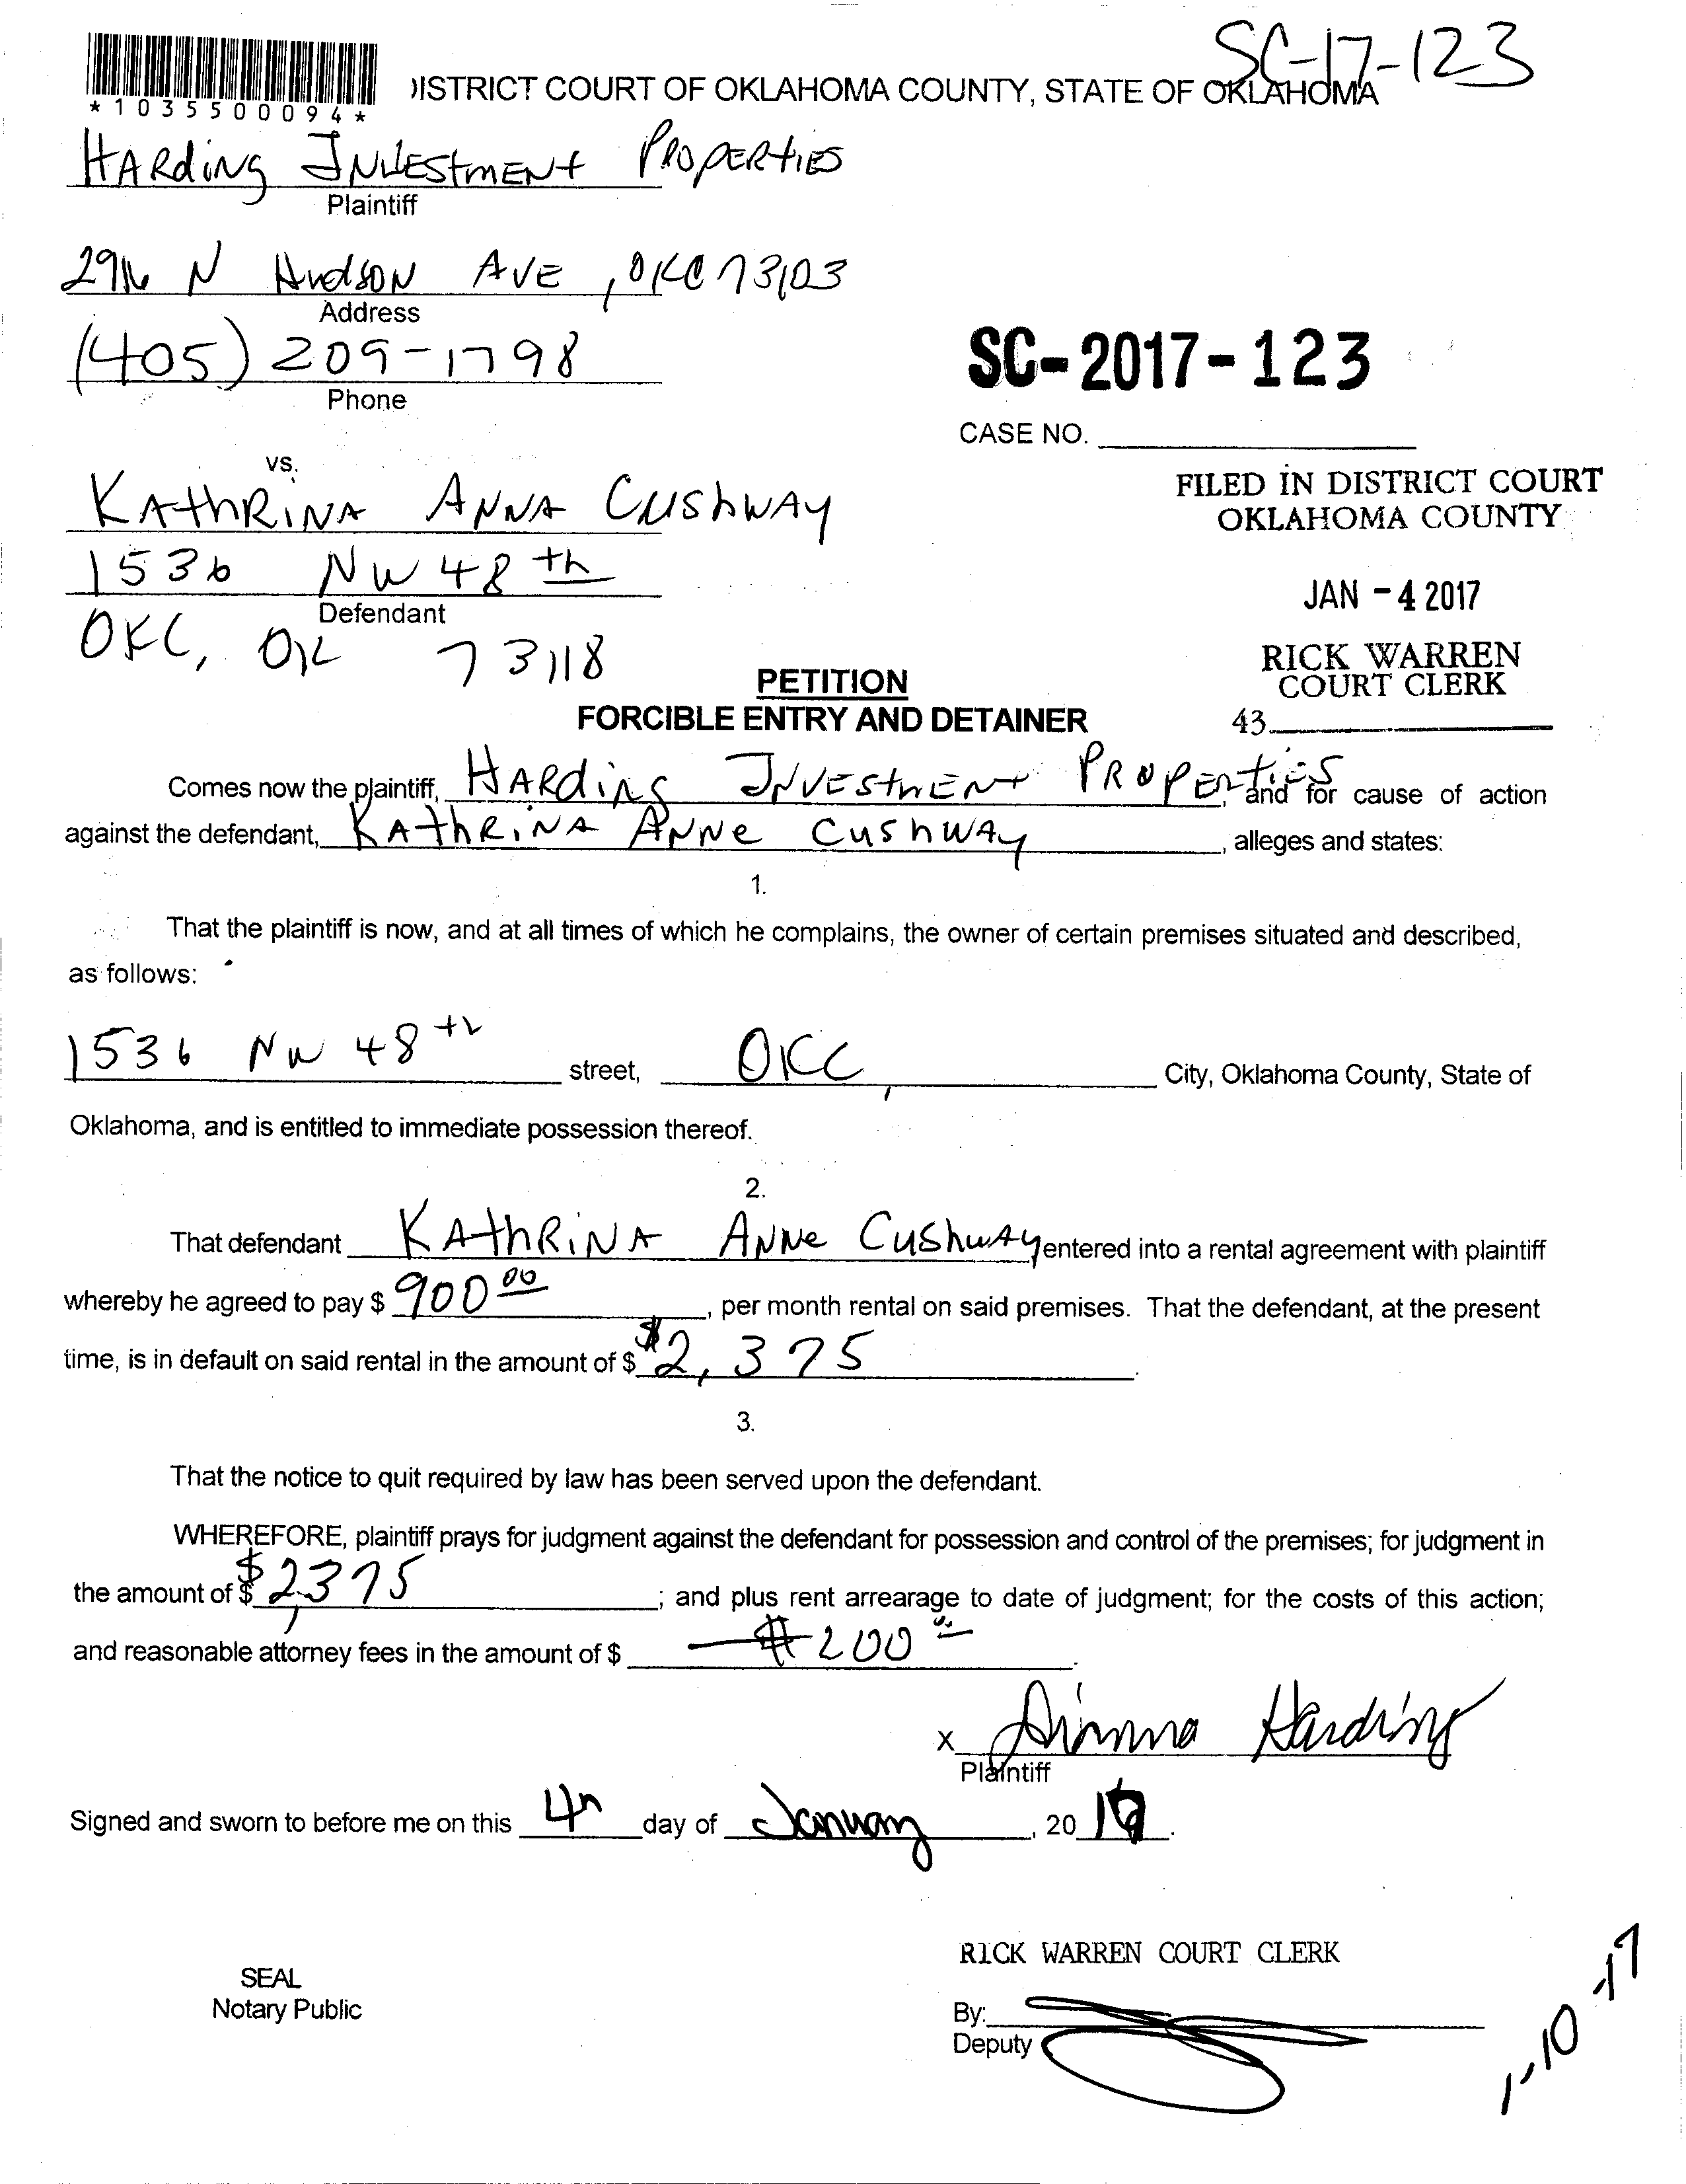 SC-17-123
*1035500094*
DISTRICT COURT OF OKLAHOMA COUNTY, STATE OF OKLAHOMA
HARding INVEStMENt PROPERtiES
Plaintiff
2916 N HudsoN AVE, OKC 73103
Address
(405) 209-1798
Phone
SC-2017-123
CASE NO.
vs.
KAthRiNA ANNA CushWAy
1536 NW 48th
Defendant
OKC, OK 73118
FILED IN DISTRICT COURT
OKLAHOMA COUNTY
JAN - 4 2017
RICK WARREN
COURT CLERK
43
PETITION
FORCIBLE ENTRY AND DETAINER
Comes now the plaintiff, HARding INVEStmENt PROPERtiES, and for cause of action
against the defendant, KAthRiNA ANNe CushWAy, alleges and states:
1.
That the plaintiff is now, and at all times of which he complains, the owner of certain premises situated and described,
as follows:
1536 NW 48th street, OKC, City, Oklahoma County, State of
Oklahoma, and is entitled to immediate possession thereof.
2.
That defendant KAthRiNA ANNe CushwAy entered into a rental agreement with plaintiff
whereby he agreed to pay $ 900 00, per month rental on said premises. That the defendant, at the present
time, is in default on said rental in the amount of $ $2,375.
3.
That the notice to quit required by law has been served upon the defendant.
WHEREFORE, plaintiff prays for judgment against the defendant for possession and control of the premises; for judgment in
the amount of $ $2,375; and plus rent arrearage to date of judgment; for the costs of this action;
and reasonable attorney fees in the amount of $ $200 00.
x Dianna Harding
Plaintiff
Signed and sworn to before me on this 4th day of January, 2017.
RICK WARREN COURT CLERK
SEAL
Notary Public
By:
Deputy
1-10-17